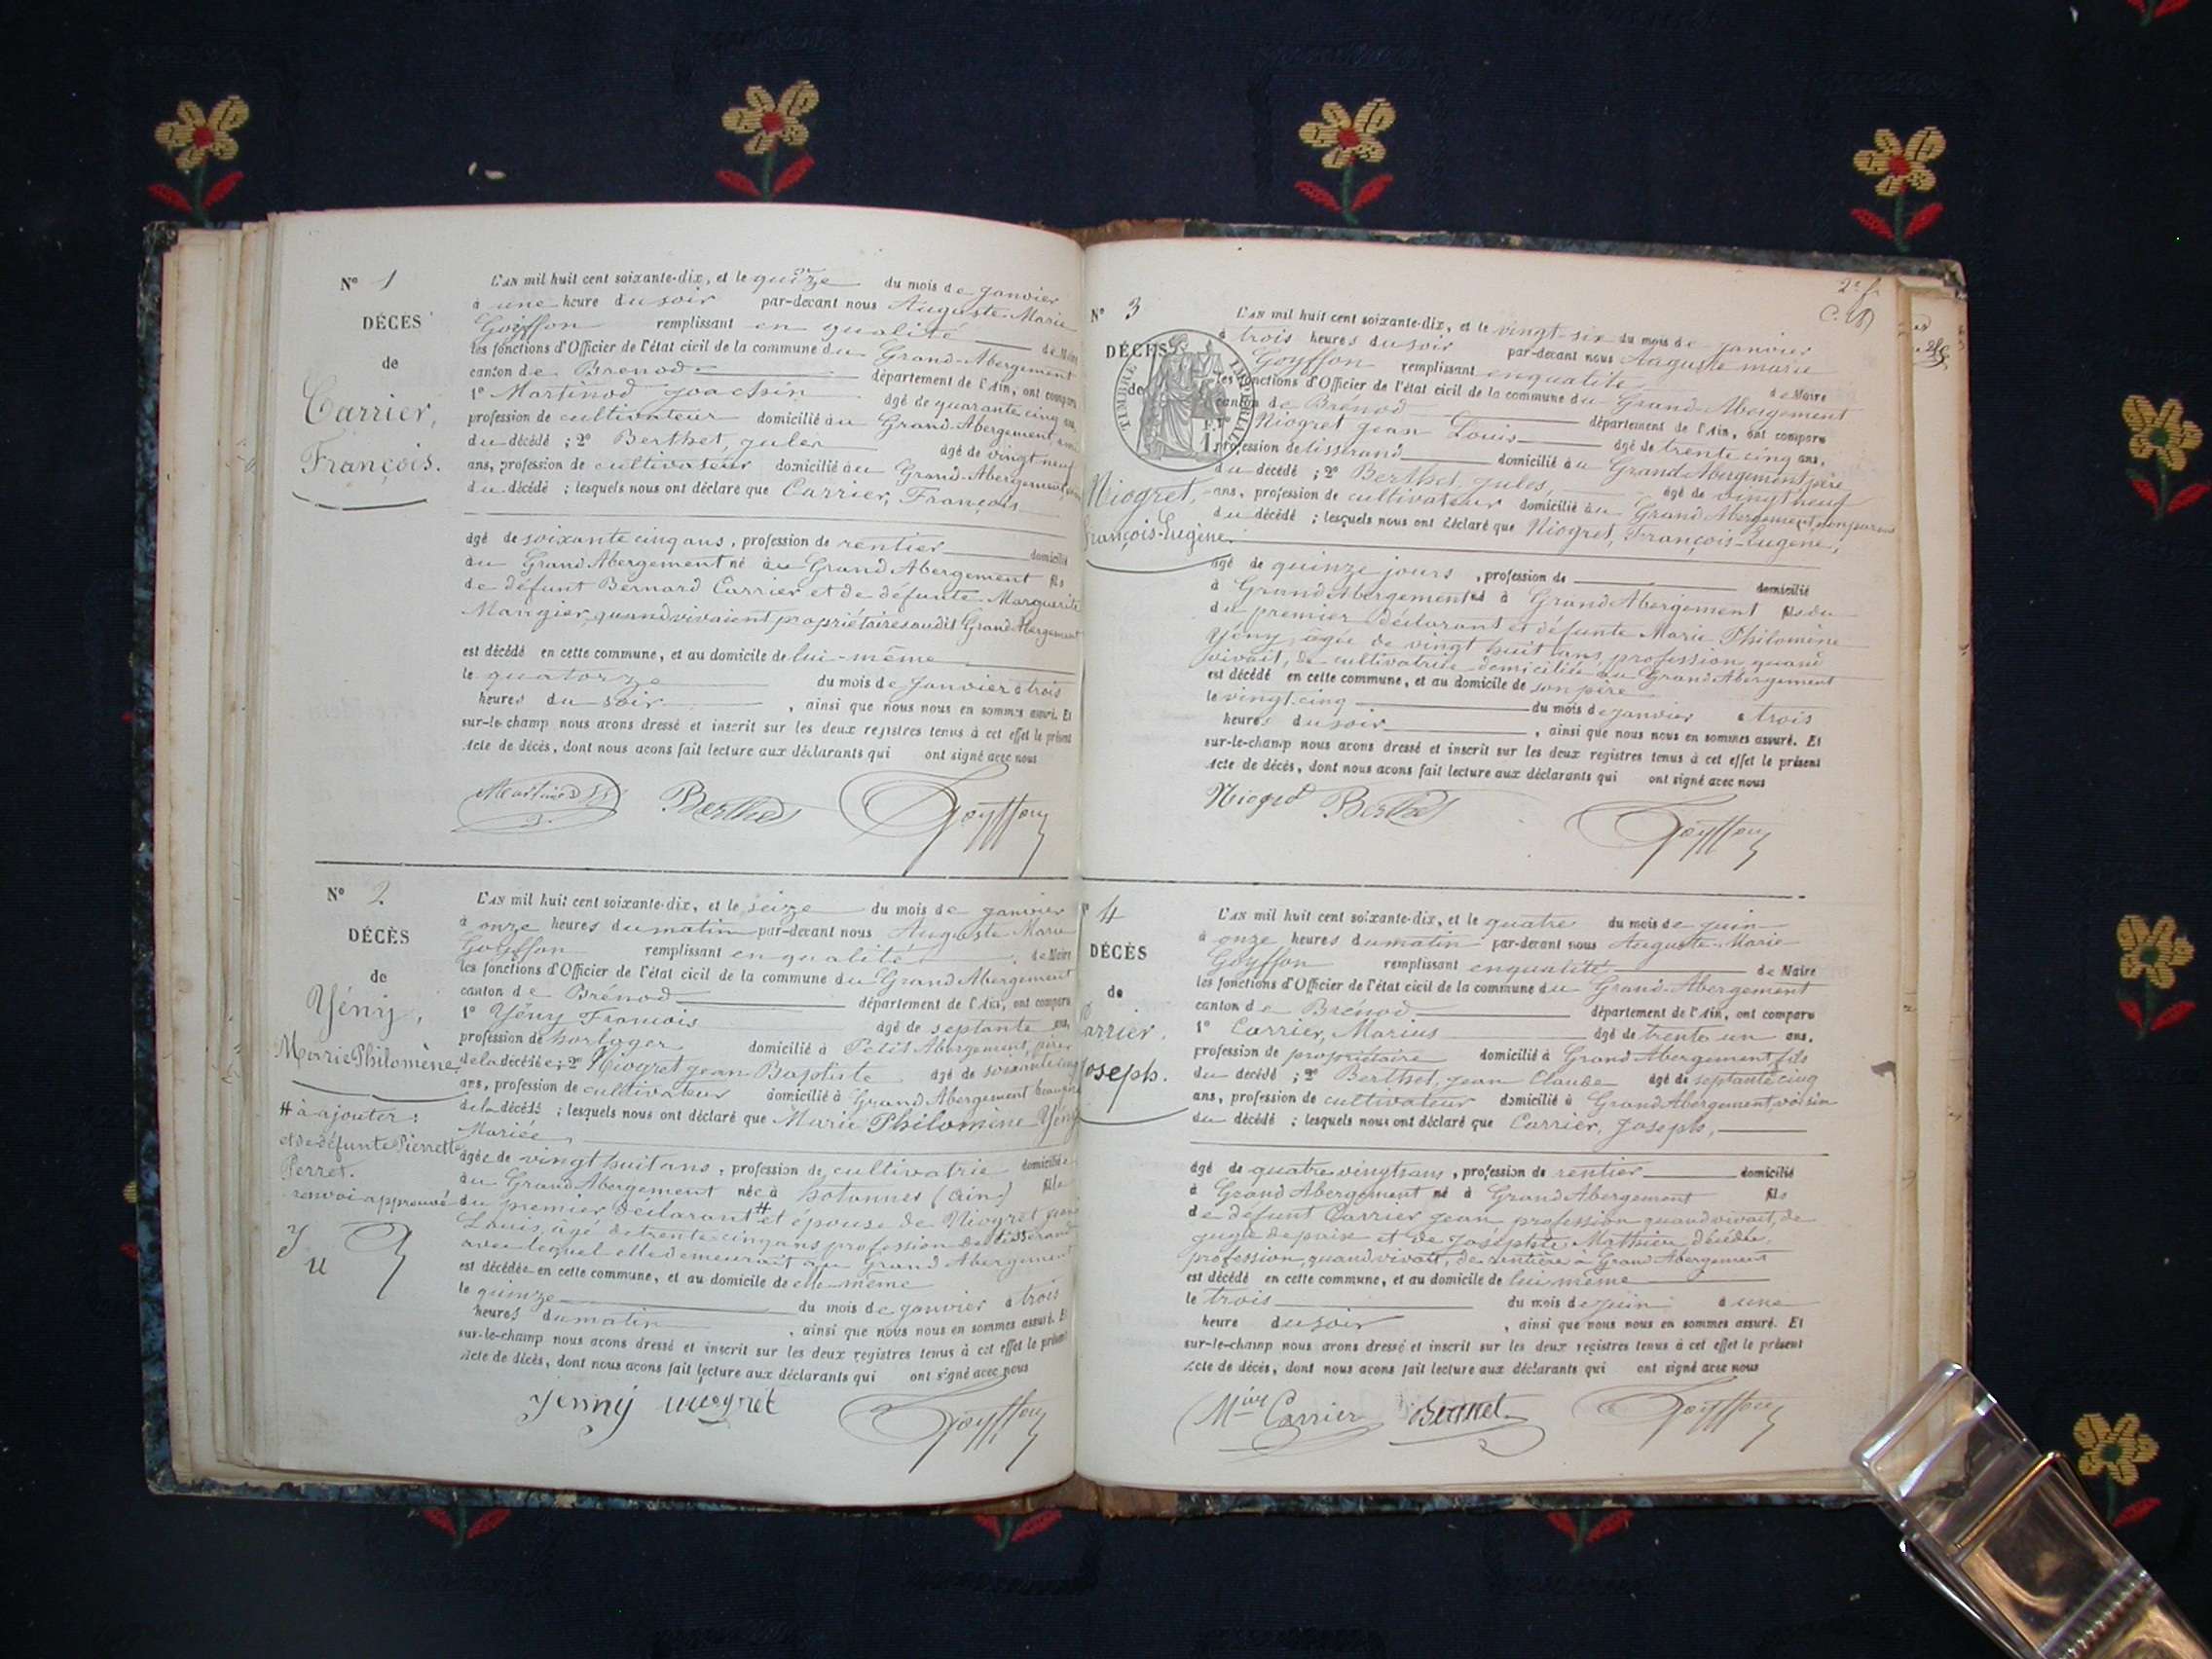 N° 1
DÉCES
de
Carrier,
François.
L'AN mil huit cent soixante-dix, et le quinze du mois de janvier
à une heure du soir par-devant nous Auguste Marie
Goyffon remplissant en qualité de Maire
les fonctions d'Officier de l'état civil de la commune du Grand-Abergement
canton de Brenod département de l'Ain, ont comparu
1° Martinod Joachin âgé de quarante cinq ans,
profession de cultivateur domicilié au Grand-Abergement
du décédé ; 2° Berthet, jules âgé de vingt neuf
ans, profession de cultivateur domicilié au Grand-Abergement
du décédé ; lesquels nous ont déclaré que Carrier, François
âgé de soixante cinq ans, profession de rentier domicilié
au Grand Abergement né au Grand Abergement fils
de défunt Bernard Carrier et de défunte Marguerite
Mangier, quand vivaient propriétaires audit Grand Abergement
est décédé en cette commune, et au domicile de lui-même
le quatorze du mois de janvier à trois
heures du soir, ainsi que nous nous en sommes assuré. Et
sur-le-champ nous avons dressé et inscrit sur les deux registres tenus à cet effet le présent
Acte de décès, dont nous avons fait lecture aux déclarants qui ont signé avec nous
Martinod Berthet Goyffon
N° 2
DÉCÈS
de
Yény,
Marie Philomène
# à ajouter :
et de défunte Pierrette
Perret.
renvoi approuvé
L'AN mil huit cent soixante-dix, et le seize du mois de janvier
à onze heures du matin par-devant nous Auguste Marie
Goyffon remplissant en qualité de Maire
les fonctions d'Officier de l'état civil de la commune du Grand Abergement
canton de Brénod département de l'Ain, ont comparu
1° Yény François âgé de septante ans,
profession de horloger domicilié à Petit Abergement, père
de la décédée ; 2° Niogret jean Baptiste âgé de soixante cinq
ans, profession de cultivateur domicilié à Grand Abergement beau père
de la décédée ; lesquels nous ont déclaré que Marie Philomène Yény
Mariée
âgée de vingt huit ans, profession de cultivatrie domiciliée
au Grand Abergement née à hotonnes (Ain) fille
du premier déclarant # et épouse de Niogret jean
Louis, âgé de trente cinq ans profession de tisserand
avec lequel elle demeurait au Grand Abergement
est décédée en cette commune, et au domicile de elle même
le quinze du mois de janvier à trois
heures du matin, ainsi que nous nous en sommes assuré. Et
sur-le-champ nous avons dressé et inscrit sur les deux registres tenus à cet effet le présent
Acte de décès, dont nous avons fait lecture aux déclarants qui ont signé avec nous
Yenny niogret Goyffon
2e f.
N° 3
DÉCÈS
de
TIMBRE IMPÉRIAL
1 F.
Niogret,
François-Eugène.
L'AN mil huit cent soixante-dix, et le vingt-six du mois de janvier
à trois heures du soir par-devant nous Auguste marie
Goyffon remplissant en qualité de Maire
les fonctions d'Officier de l'état civil de la commune du Grand Abergement
canton de Brénod département de l'Ain, ont comparu
1° Niogret jean Louis âgé de trente cinq ans,
profession de tisserand domicilié au Grand Abergement père
du décédé ; 2° Berthet, jules, âgé de vingt neuf
ans, profession de cultivateur domicilié au Grand Abergement, non parent
du décédé ; lesquels nous ont déclaré que Niogret, François-Eugène,
âgé de quinze jours, profession de domicilié
à Grand Abergement né à Grand Abergement fils du
du premier déclarant et défunte Marie Philomène
Yény, âgée de vingt huit ans, profession quand
vivait, de cultivatrice domiciliée au Grand Abergement
est décédé en cette commune, et au domicile de son père
le vingt cinq du mois de janvier à trois
heures du soir, ainsi que nous nous en sommes assuré. Et
sur-le-champ nous avons dressé et inscrit sur les deux registres tenus à cet effet le présent
Acte de décès, dont nous avons fait lecture aux déclarants qui ont signé avec nous
Niogret Berthet Goyffon
4
DÉCÈS
de
Carrier,
Joseph.
L'AN mil huit cent soixante-dix, et le quatre du mois de juin
à onze heures du matin par-devant nous Auguste Marie
Goyffon remplissant en qualité de Maire
les fonctions d'Officier de l'état civil de la commune du Grand-Abergement
canton de Brénod département de l'Ain, ont comparu
1° Carrier, Marius âgé de trente un ans,
profession de propriétaire domicilié à Grand Abergement, fils
du décédé ; 2° Berthet, jean Claude âgé de septante cinq
ans, profession de cultivateur domicilié à Grand Abergement, voisin
du décédé ; lesquels nous ont déclaré que Carrier, Joseph,
âgé de quatre vingts ans, profession de rentier domicilié
à Grand Abergement né à Grand Abergement fils
de défunt Carrier jean profession quand vivait, de
juge de paix et de Josephte Mathieu décédée,
profession, quand vivait, de rentière à Grand Abergement
est décédé en cette commune, et au domicile de lui même
le trois du mois de juin à une
heure du soir, ainsi que nous nous en sommes assuré. Et
sur-le-champ nous avons dressé et inscrit sur les deux registres tenus à cet effet le présent
Acte de décès, dont nous avons fait lecture aux déclarants qui ont signé avec nous
Mius Carrier Berthet Goyffon